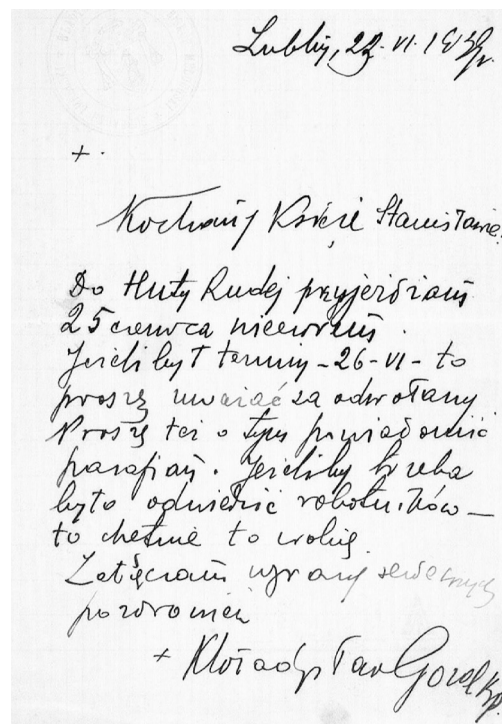 Lublin, 22.VI.1959r.
+
Kochany Księże Stanisławie.
Do Huty Rudej przyjeżdżam
25 czerwca wieczorem.
Jeżeli był termin - 26-VI - to
proszę uważać za odwołany
Proszę też o tym powiadomić
parafian. Jeżeliby trzeba
było odwiedzić robotników -
to chętnie to zrobię.
Załączam wyrazy serdecznych
pozdrowień
+